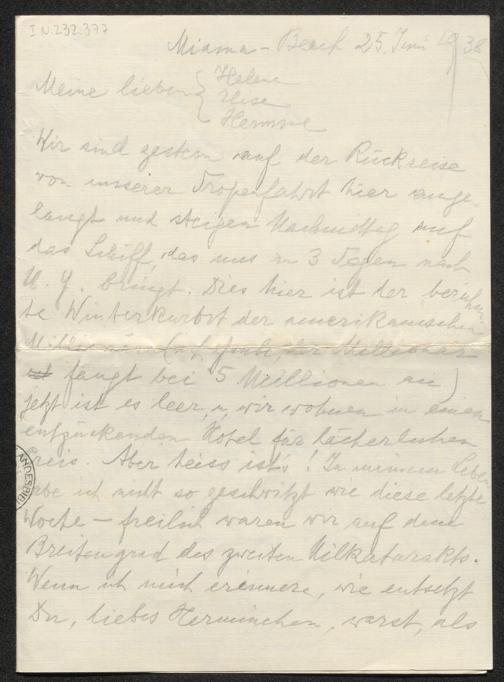 I.N. 232.377
Miama-Beach 25. Juni 1938
Meine lieben { Helene
Elise
Hermine
Wir sind gestern auf der Rückreise
von unserer Tropenfahrt hier ange-
langt und steigen Nachmittag auf
das Schiff, das uns in 3 Tagen nach
N. Y. bringt. Dies hier ist der berühm-
te Winterkurort der amerikanischen
Millionäre der Millionär
fängt bei 5 Millionen an)
jetzt ist es leer, u. wir wohnen in einem
entzückenden Hotel für lächerlichen
Preis. Aber heiss ist's! In meinem Leben
habe ich nicht so geschwitzt wie diese letzte
Woche – freilich waren wir auf dem
Breitengrad des zweiten Nilkatarakts.
Wenn ich mich erinnere, wie entsetzt
Du, liebes Herminchen, warst, als